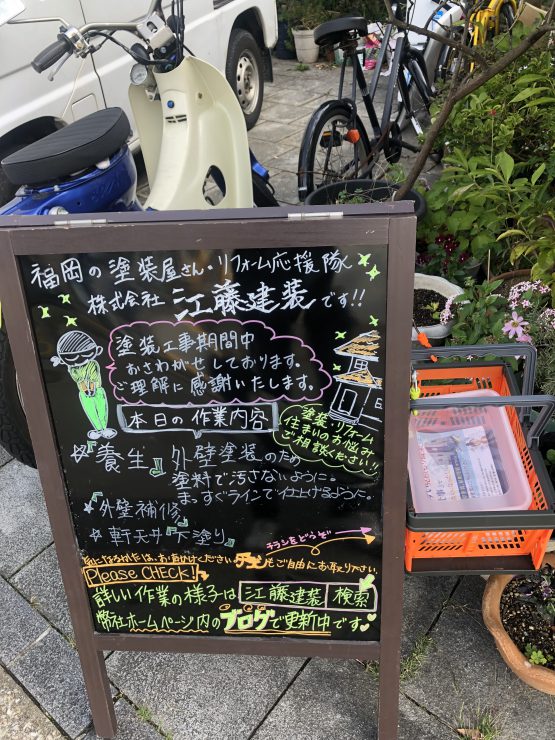 福岡の塗装屋さん・リフォーム応援隊
株式会社 江藤建装です!!
塗装工事期間中
おさわがせしております。
ご理解に感謝いたします。
本日の作業内容
塗装・リフォーム
住まいのお悩み
ご相談ください!!
☆養生』外壁塗装のため
塗料で汚さないように。
まっすぐラインで仕上げるように。
☆外壁補修
☆軒天井『下塗り』
チラシをどうぞ
気になる方は、お声かけください チラシもご自由にお取り下さい。
Please CHECK!
詳しい作業の様子は 江藤建装 検索
弊社ホームページ内のブログで更新中です♥